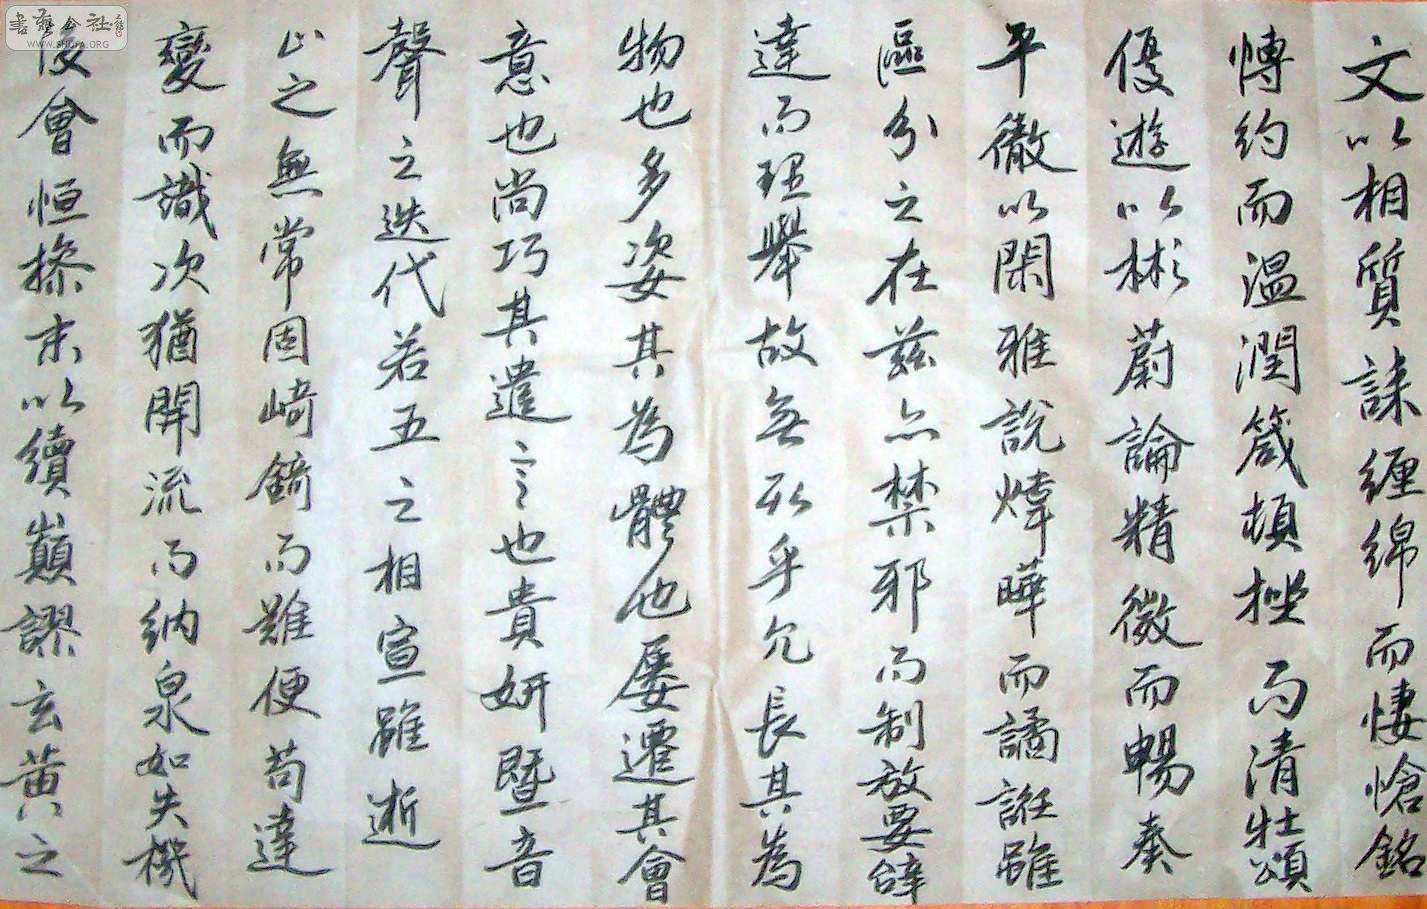 文以相質誄纏綿而悽愴銘
博約而溫潤箴頓挫而清壯頌
優遊以彬蔚論精微而暢奏
平徹以閑雅說煒曄而譎誑雖
區分之在茲亦禁邪而制放要辭
達而理舉故無取乎冗長其為
物也多姿其為體也屢遷其會
意也尚巧其遣言也貴妍暨音
聲之迭代若五之相宣雖逝
止之無常固崎錡而難便苟達
變而識次猶開流而納泉如失機
後會恒操末以續巔謬玄黃之
書藝公社
WWW.SHUFA.ORG